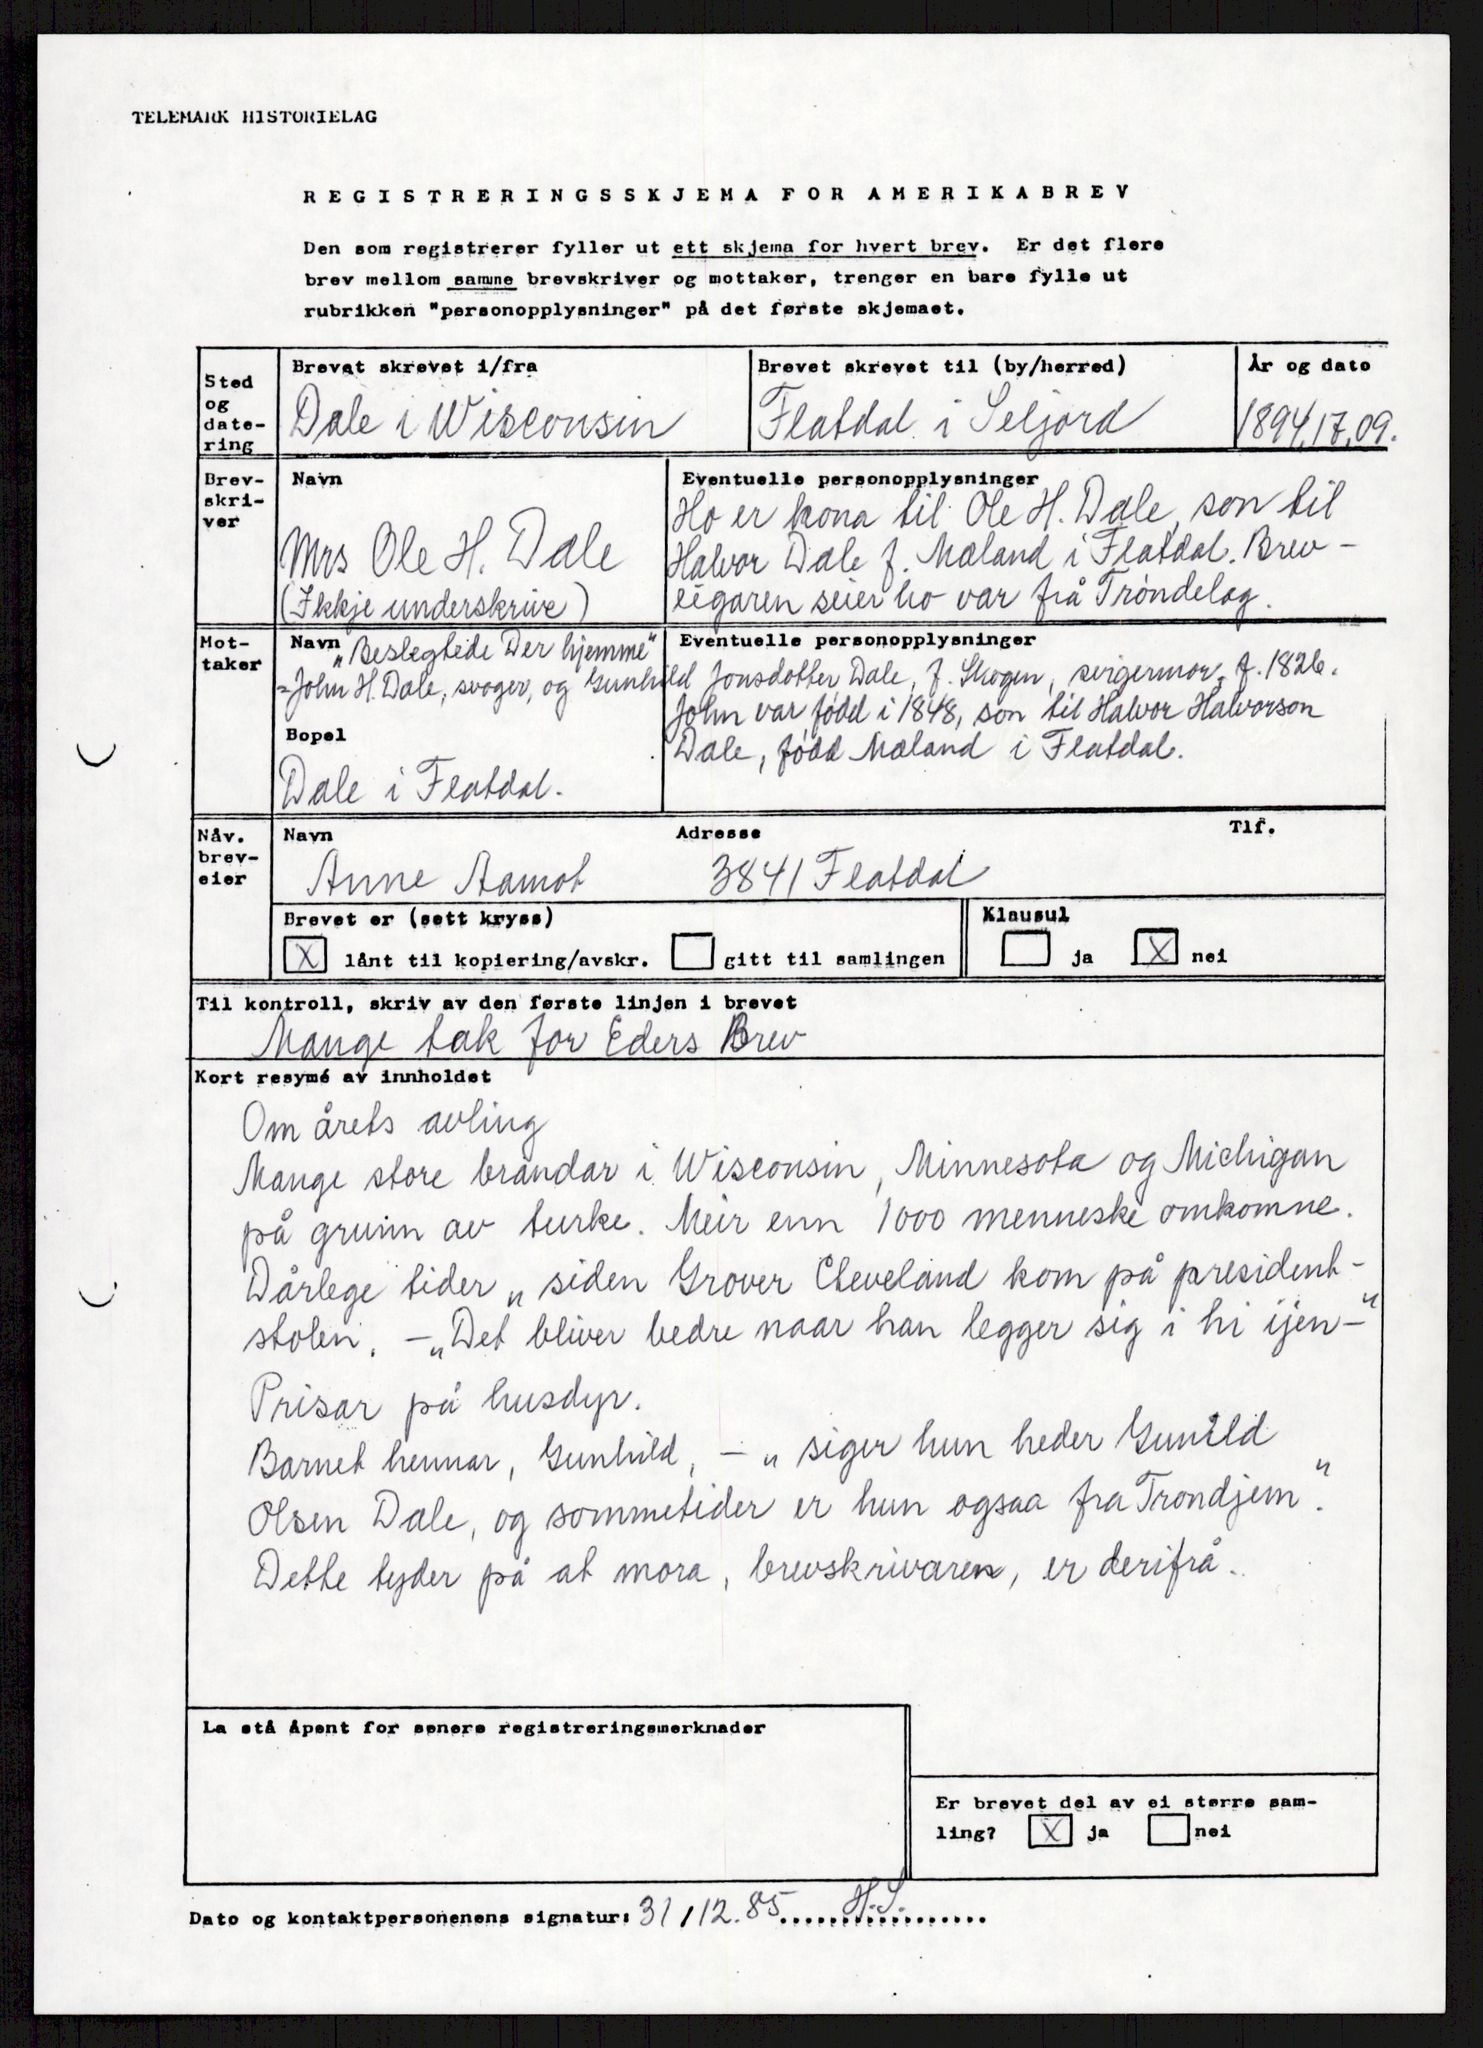 TELEMARK HISTORIELAG
REGISTRERINGSSKJEMA FOR AMERIKABREV
Den som registrerer fyller ut ett skjema for hvert brev. Er det flere
brev mellom samme brevskriver og mottaker, trenger en bare fylle ut
rubrikken "personopplysninger" på det første skjemaet.
Sted og date-ring
Brevet skrevet i/fra
Dale i Wisconsin
Brevet skrevet til (by/herred)
Flatdal i Seljord
År og dato
1894,17,09.
Brev-skri-ver
Navn
Mrs Ole H. Dale
(Ikkje underskrive)
Eventuelle personopplysninger
Ho er kona til Ole H. Dale, son til
Halvor Dale f. Mæland i Flatdal. Brev-
eigaren seier ho var frå Trøndelag.
Mot-taker
Navn
„Beslegtede Der hjemme"
Eventuelle personopplysninger
=John H. Dale, svoger, og Gunhild Jonsdotter Dale, f. Skogen, svigermor, f. 1826.
John var fødd i 1848, son til Halvor Halvorson
Dale, fødd Mæland i Flatdal.
Bopel
Dale i Flatdal.
Nåv. brev-eier
Navn
Adresse
Tlf.
Anne Aamot 3841 Flatdal
Brevet er (sett kryss)
X lånt til kopiering/avskr. gitt til samlingen
Klausul
ja X nei
Til kontroll, skriv av den første linjen i brevet
Mange tak for Eders Brev
Kort resymé av innholdet
Om årets avling
Mange store brandar i Wisconsin, Minnesota og Michigan
på grunn av turke. Meir enn 1000 menneske omkomne.
Dårlege tider „siden Grover Cleveland kom på president-
stolen. - „Det bliver bedre naar han legger sig i hi ijen-"
Prisar på husdyr.
Barnet hennar, Gunhild, - „siger hun heder Gunild
Olsen Dale, og sommetider er hun ogsaa fra Trondjem".
Dette tyder på at mora, brevskrivaren, er derifrå.
La stå åpent for senere registreringsmerknader
Er brevet del av ei større sam-
ling? X ja nei
Dato og kontaktpersonenens signatur: 31/12.85 H.S.